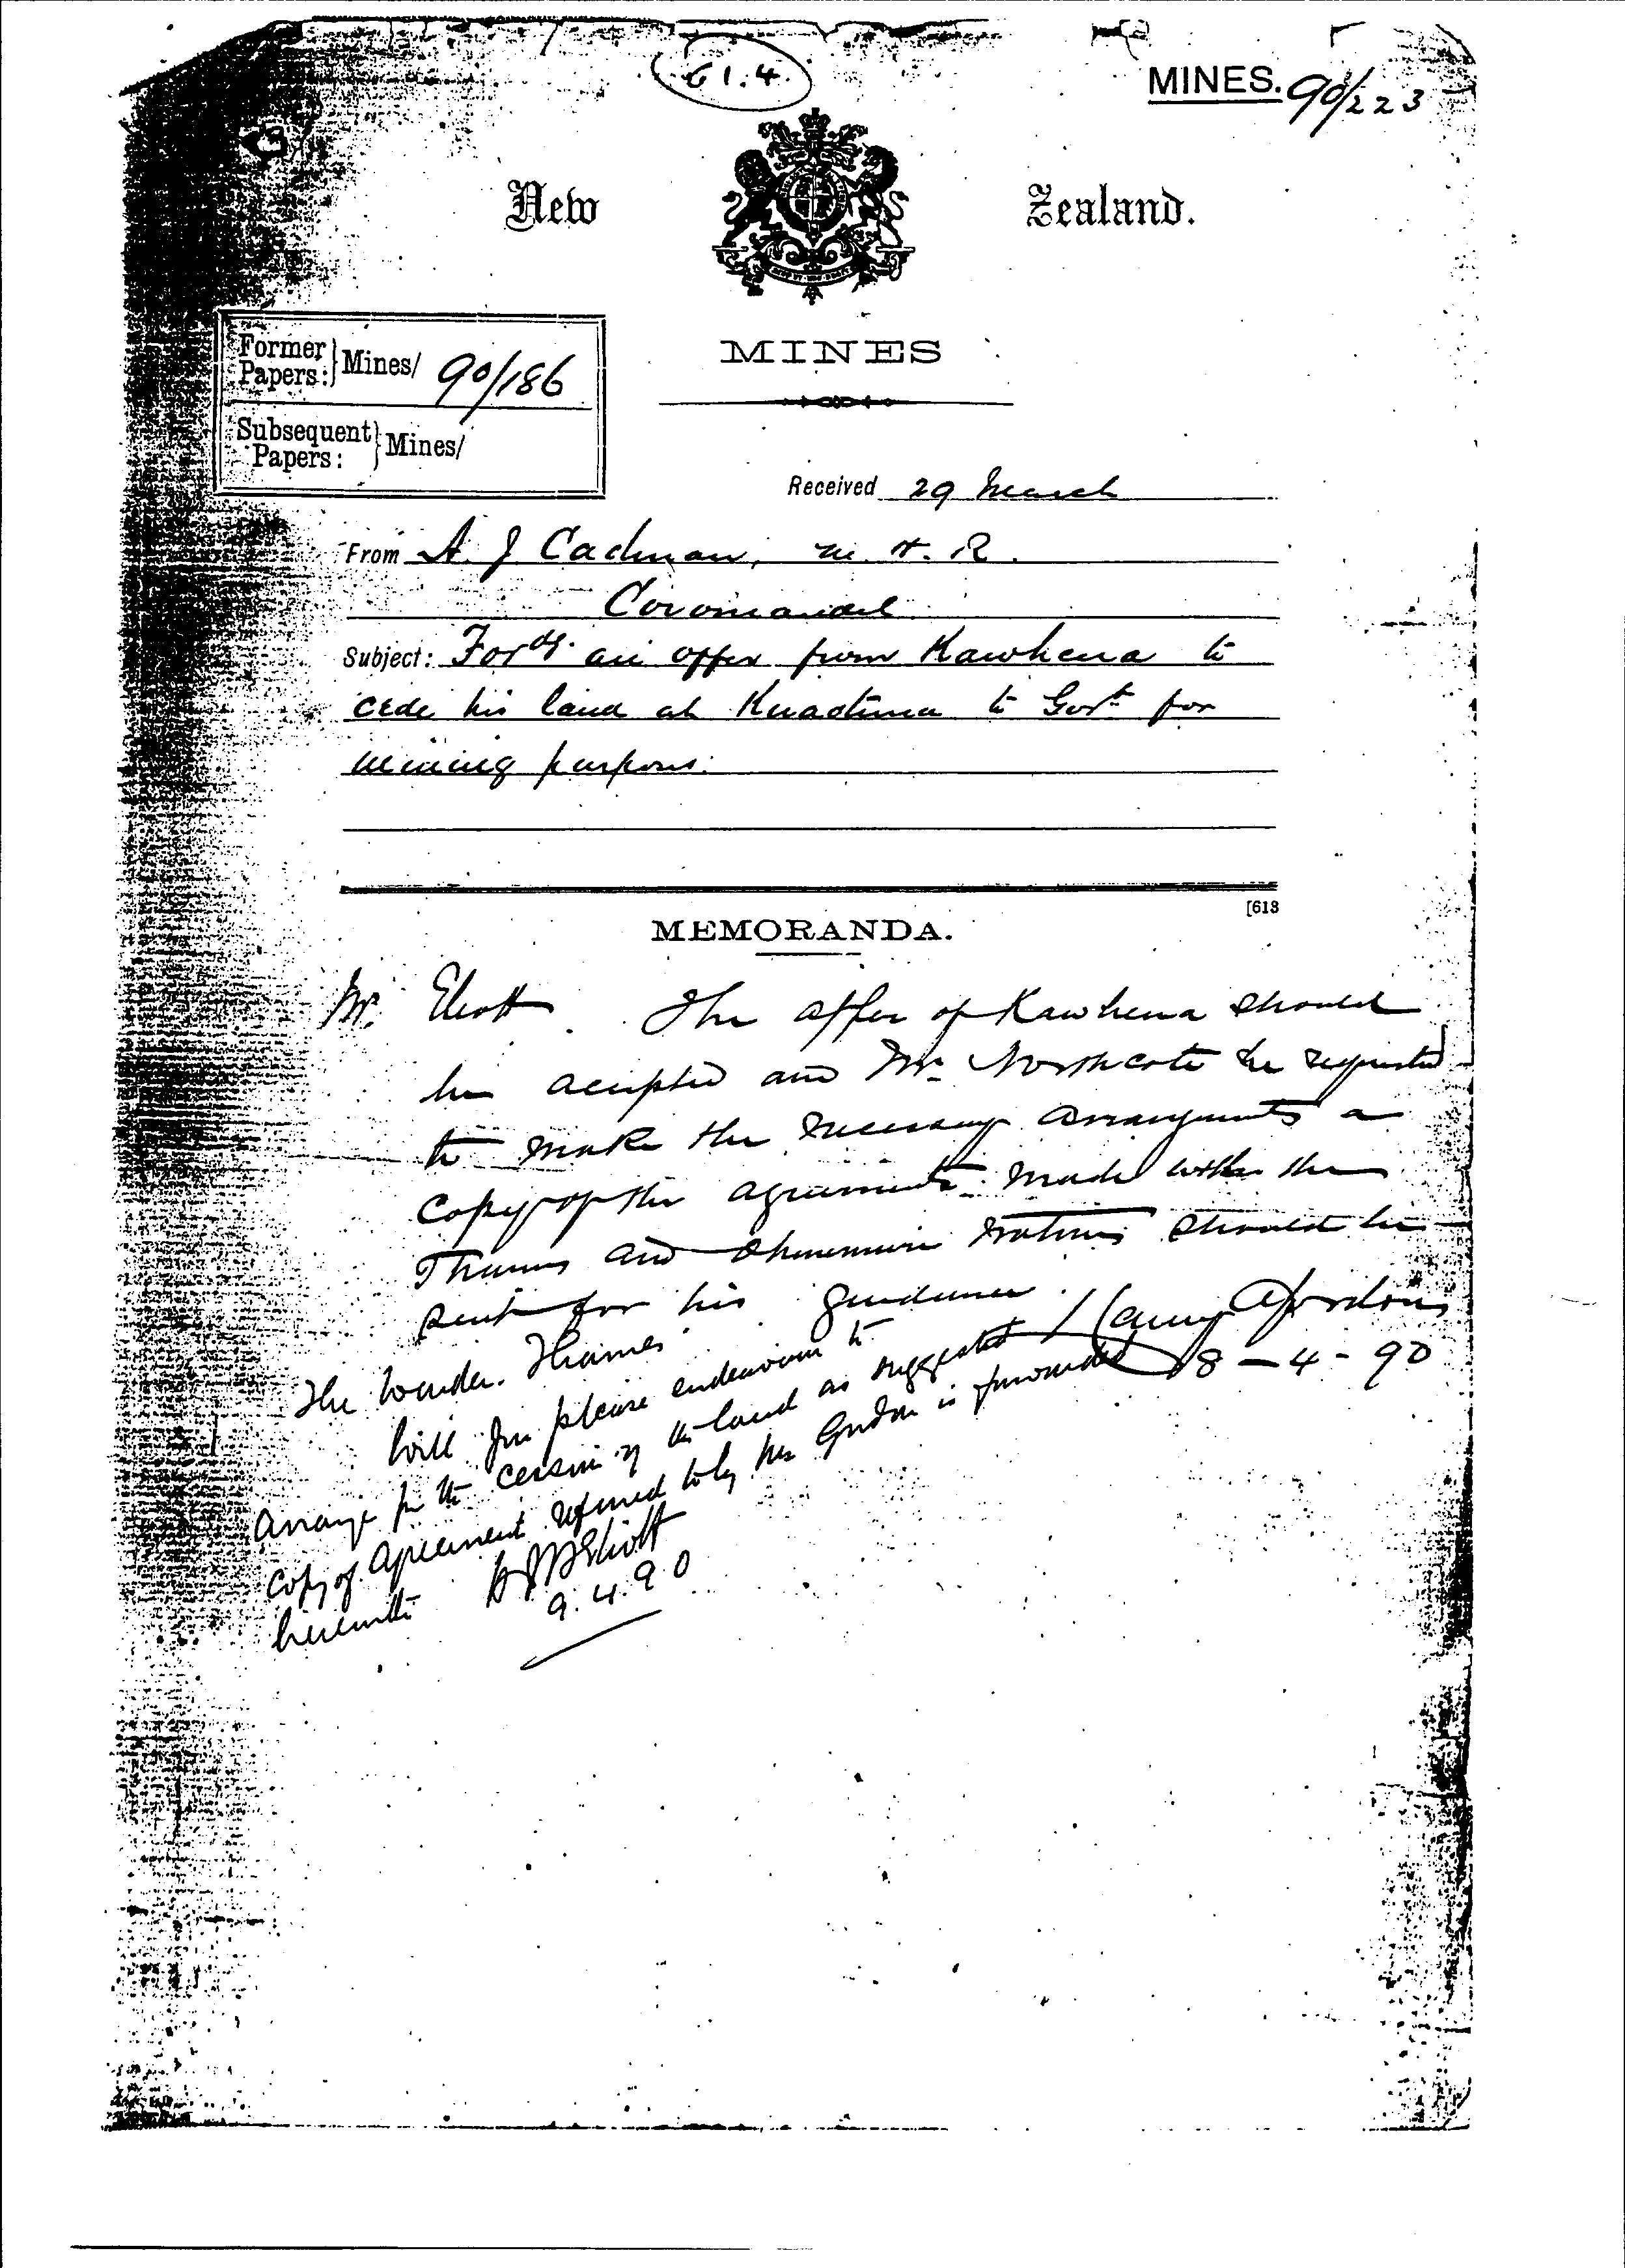 61.4.
MINES. 90/223
New Zealand.
Former Papers: } Mines/ 90/186
Subsequent Papers: } Mines/
MINES
Received 29 March
From A. J. Cadman, M.H.R.
Coromandel
Subject: Fordg. an offer from Kawhena to
cede his land at Kuaotunu to Govt for
mining purposes.
[613
MEMORANDA.
Mr. Eliott. The offer of Kawhena should
be accepted and Mr. Northcote be requested
to make the necessary arrangements a
copy of the agreements made with the
Thames and Ohinemuri natives should be
sent for his guidance.
Henry A Gordon
8-4-90
The Warden. Thames
Will you please endeavour to
arrange for the cession of the land as suggested
copy of agreement referred to by Mr Gordon is forwarded
herewith
H J H Eliott
9.4.90